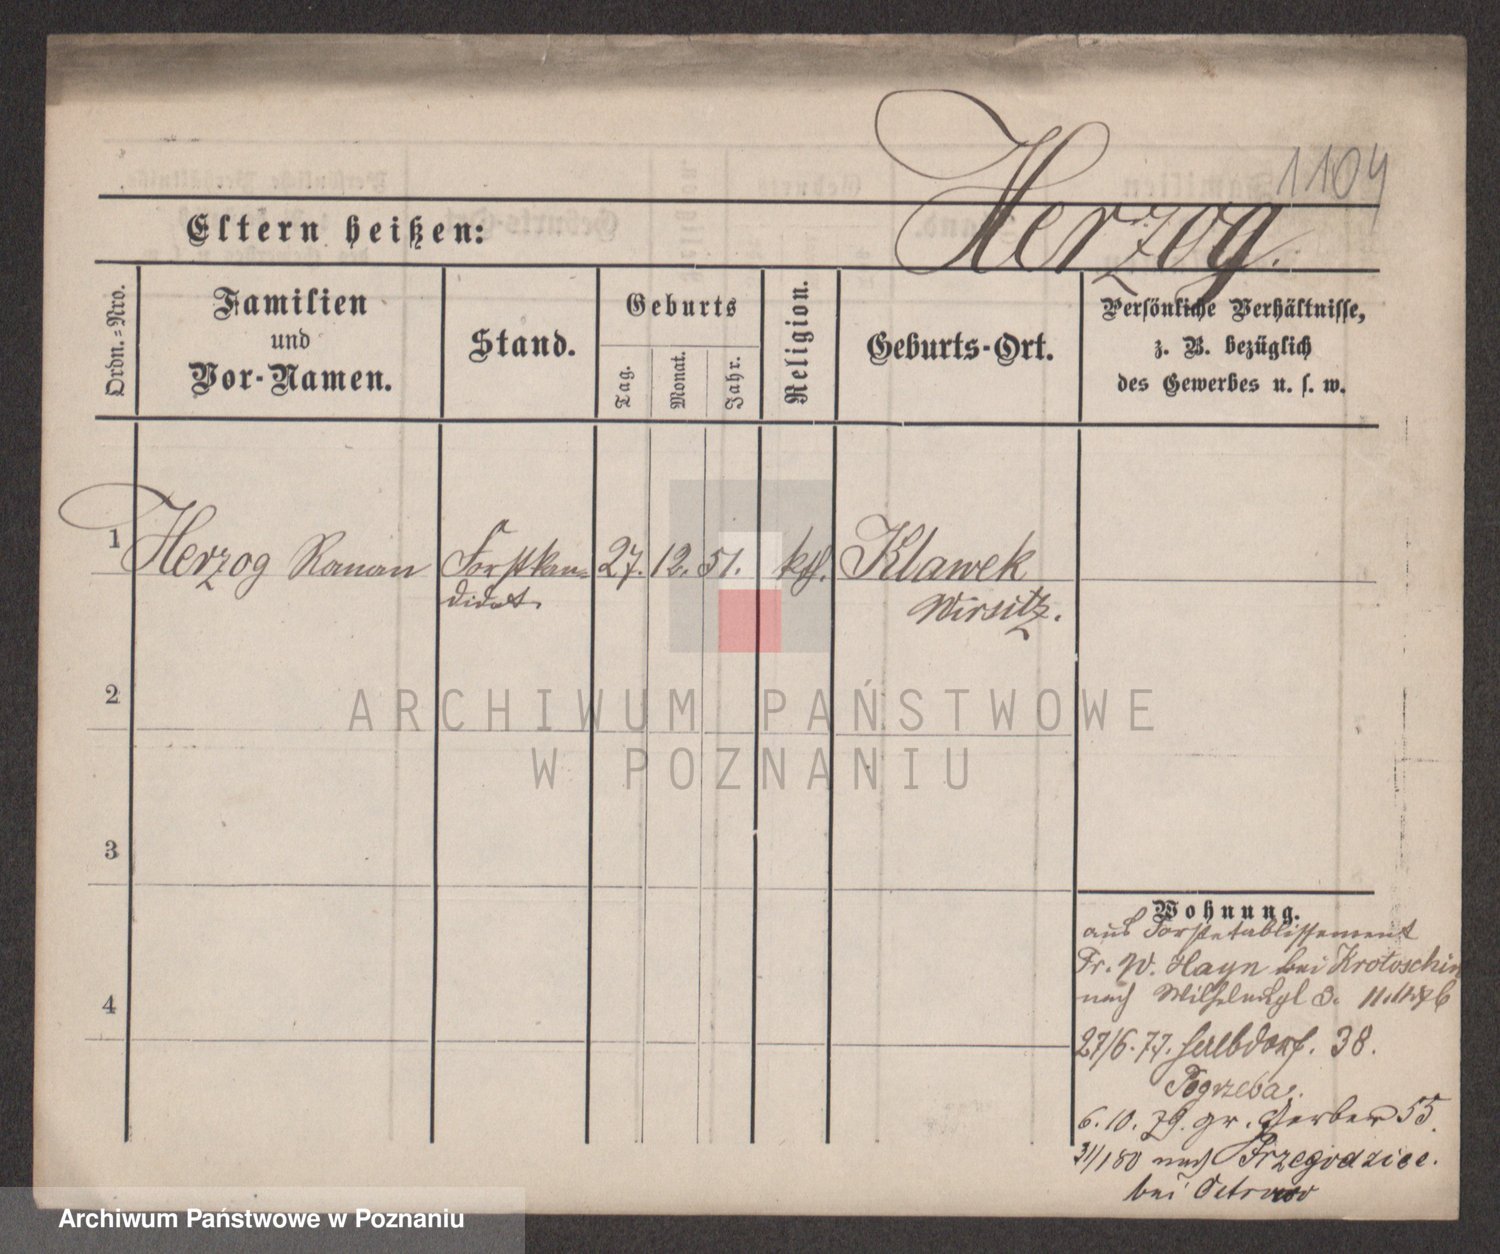 1104
Herzog.
Eltern heißen:
Ordn.-Nro.
Familien
und
Vor-Namen.
Stand.
Geburts
Tag.
Monat.
Jahr.
Religion.
Geburts-Ort.
Persönliche Verhältnisse,
z. B. bezüglich
des Gewerbes u. s. w.
1 Herzog Roman Forstkan- 27. 12. 51. kth. Klawek
didat. Wirsitz.
2
ARCHIWUM PAŃSTWOWE
W POZNANIU
3
4
Wohnung.
aus Forstetablissement
Fr. W. Hayn bei Krotoschin
nach 3.
27/6. 77. Halbdorf. 38.
Pogrzeba.
6. 10. 79. gr. Gerber 55.
31/1 80 nach Przegodzice.
bei Ostrowo
Archiwum Państwowe w Poznaniu